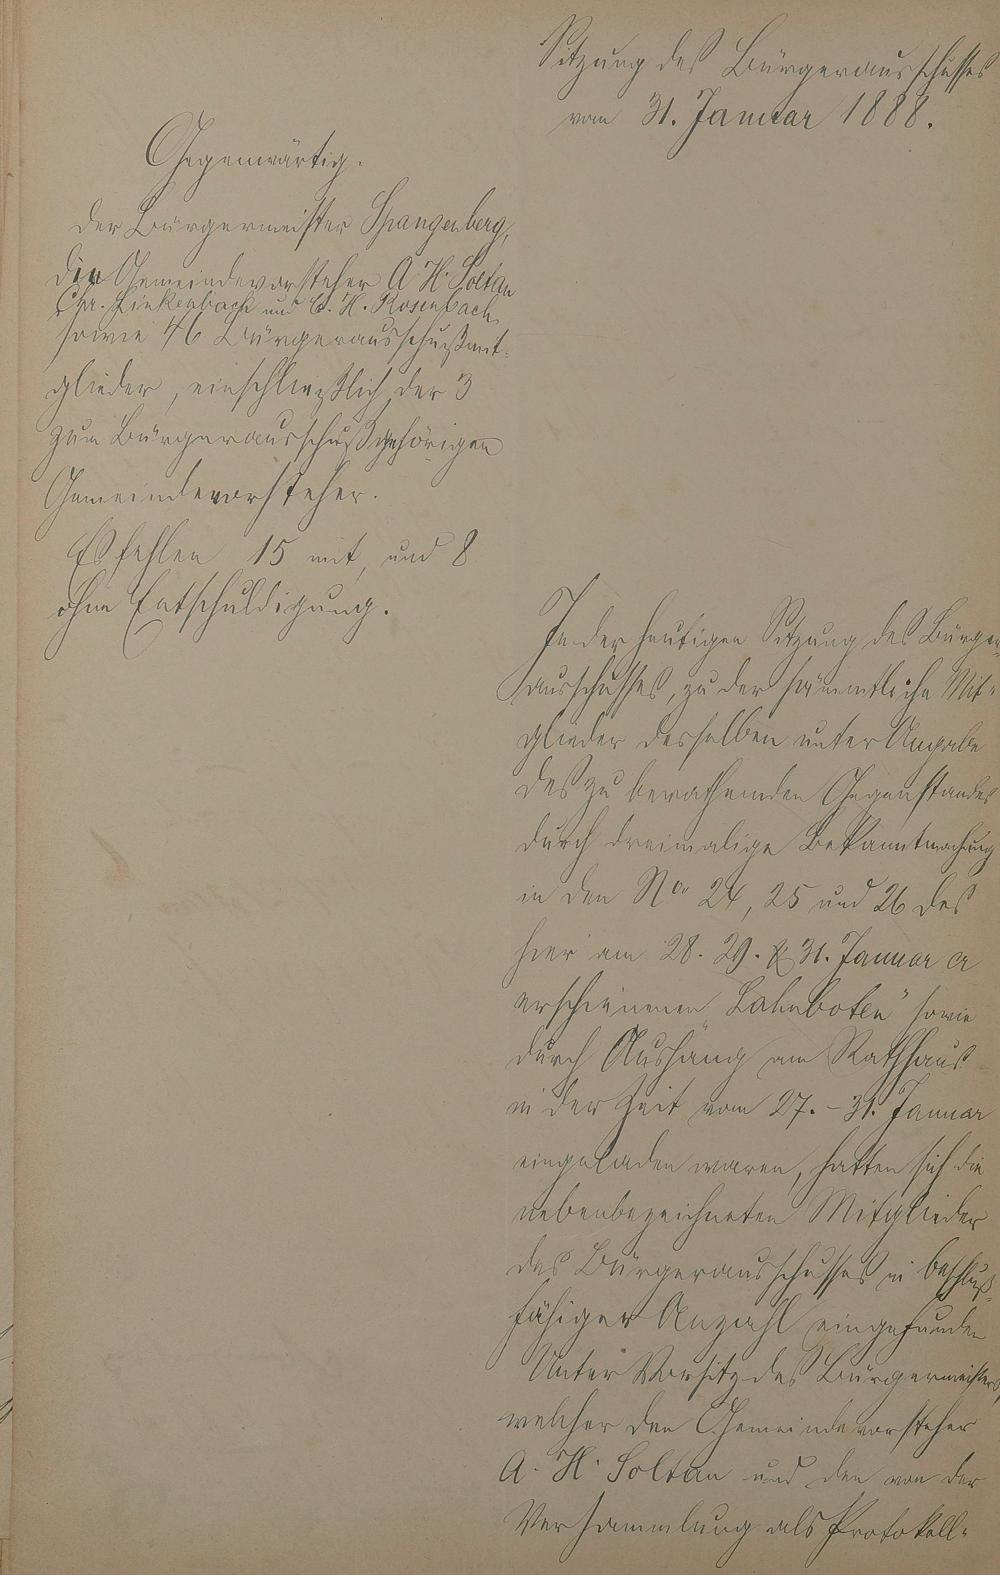 Sitzung des Bürgerausschusses
vom 31. Januar 1888.
Gegenwärtig.
der Bürgermeister Spangenberg,
die Gemeindevorsteher A H. Soltan
Chr. Linkenbach und C. H. Rosenbach,
sowie 46 Bürgerausschußmit-
glieder, einschließlich der 3
zum Bürgerausschuß gehörigen
Gemeindevorsteher.
Es fehlen 15 mit, und 8
ohne Entschuldigung.
In der heutigen Sitzung des Bürger-
ausschusses, zu der sämmtliche Mit-
glieder desselben unter Angabe
des zu berathenden Gegenstandes
durch dreimalige Bekanntmachung
in den No 24, 25 und 26 des
hier am 28. 29. & 31. Januar cr
erschienenen „Lahnboten" sowie
durch Aushang am Rathhaus
in der Zeit vom 27. - 31. Januar
eingeladen waren, hatten sich die
nebenbezeichneten Mitglieder
des Bürgerausschusses in beschluß-
fähiger Anzahl eingefunden
Unter Vorsitz des Bürgermeisters,
welcher den Gemeindevorsteher
A. H. Soltan und den von der
Versammlung als Protokoll-